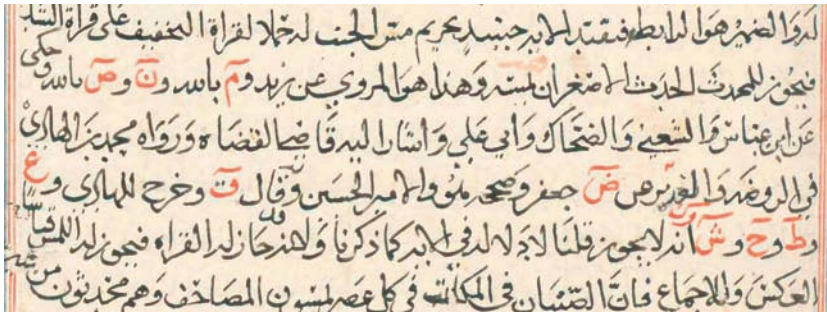 له والضمير هو الرابط فيقيد الآية حينئذ تحريم مس الجنب له حملا لقراة التخفيف على قراة التشد
فيجوز للمحدث الحدث الاصغر ان يمسه وهذا هو المروي عن زيد وم بالله ون وص بالله وحكى
عن ابن عباس والشعبي والضحاك وابي علي واشار اليه قاضي القضاة ورواه محمد بن الهادي
في الروضة والغدير عن ض جعفر وصححه والامير الحسين وقال ف وخرج للهادي وع
وط وح وش انه لا يجوز قلنا لا دلالة في الآية كما ذكرنا ولانه قد جاز له القراه فيجوز له اللمس قياسا
العكس وللاجماع فان الصبيان في المكاتب في كل عصر يمسون المصاحف وهم محدثون من